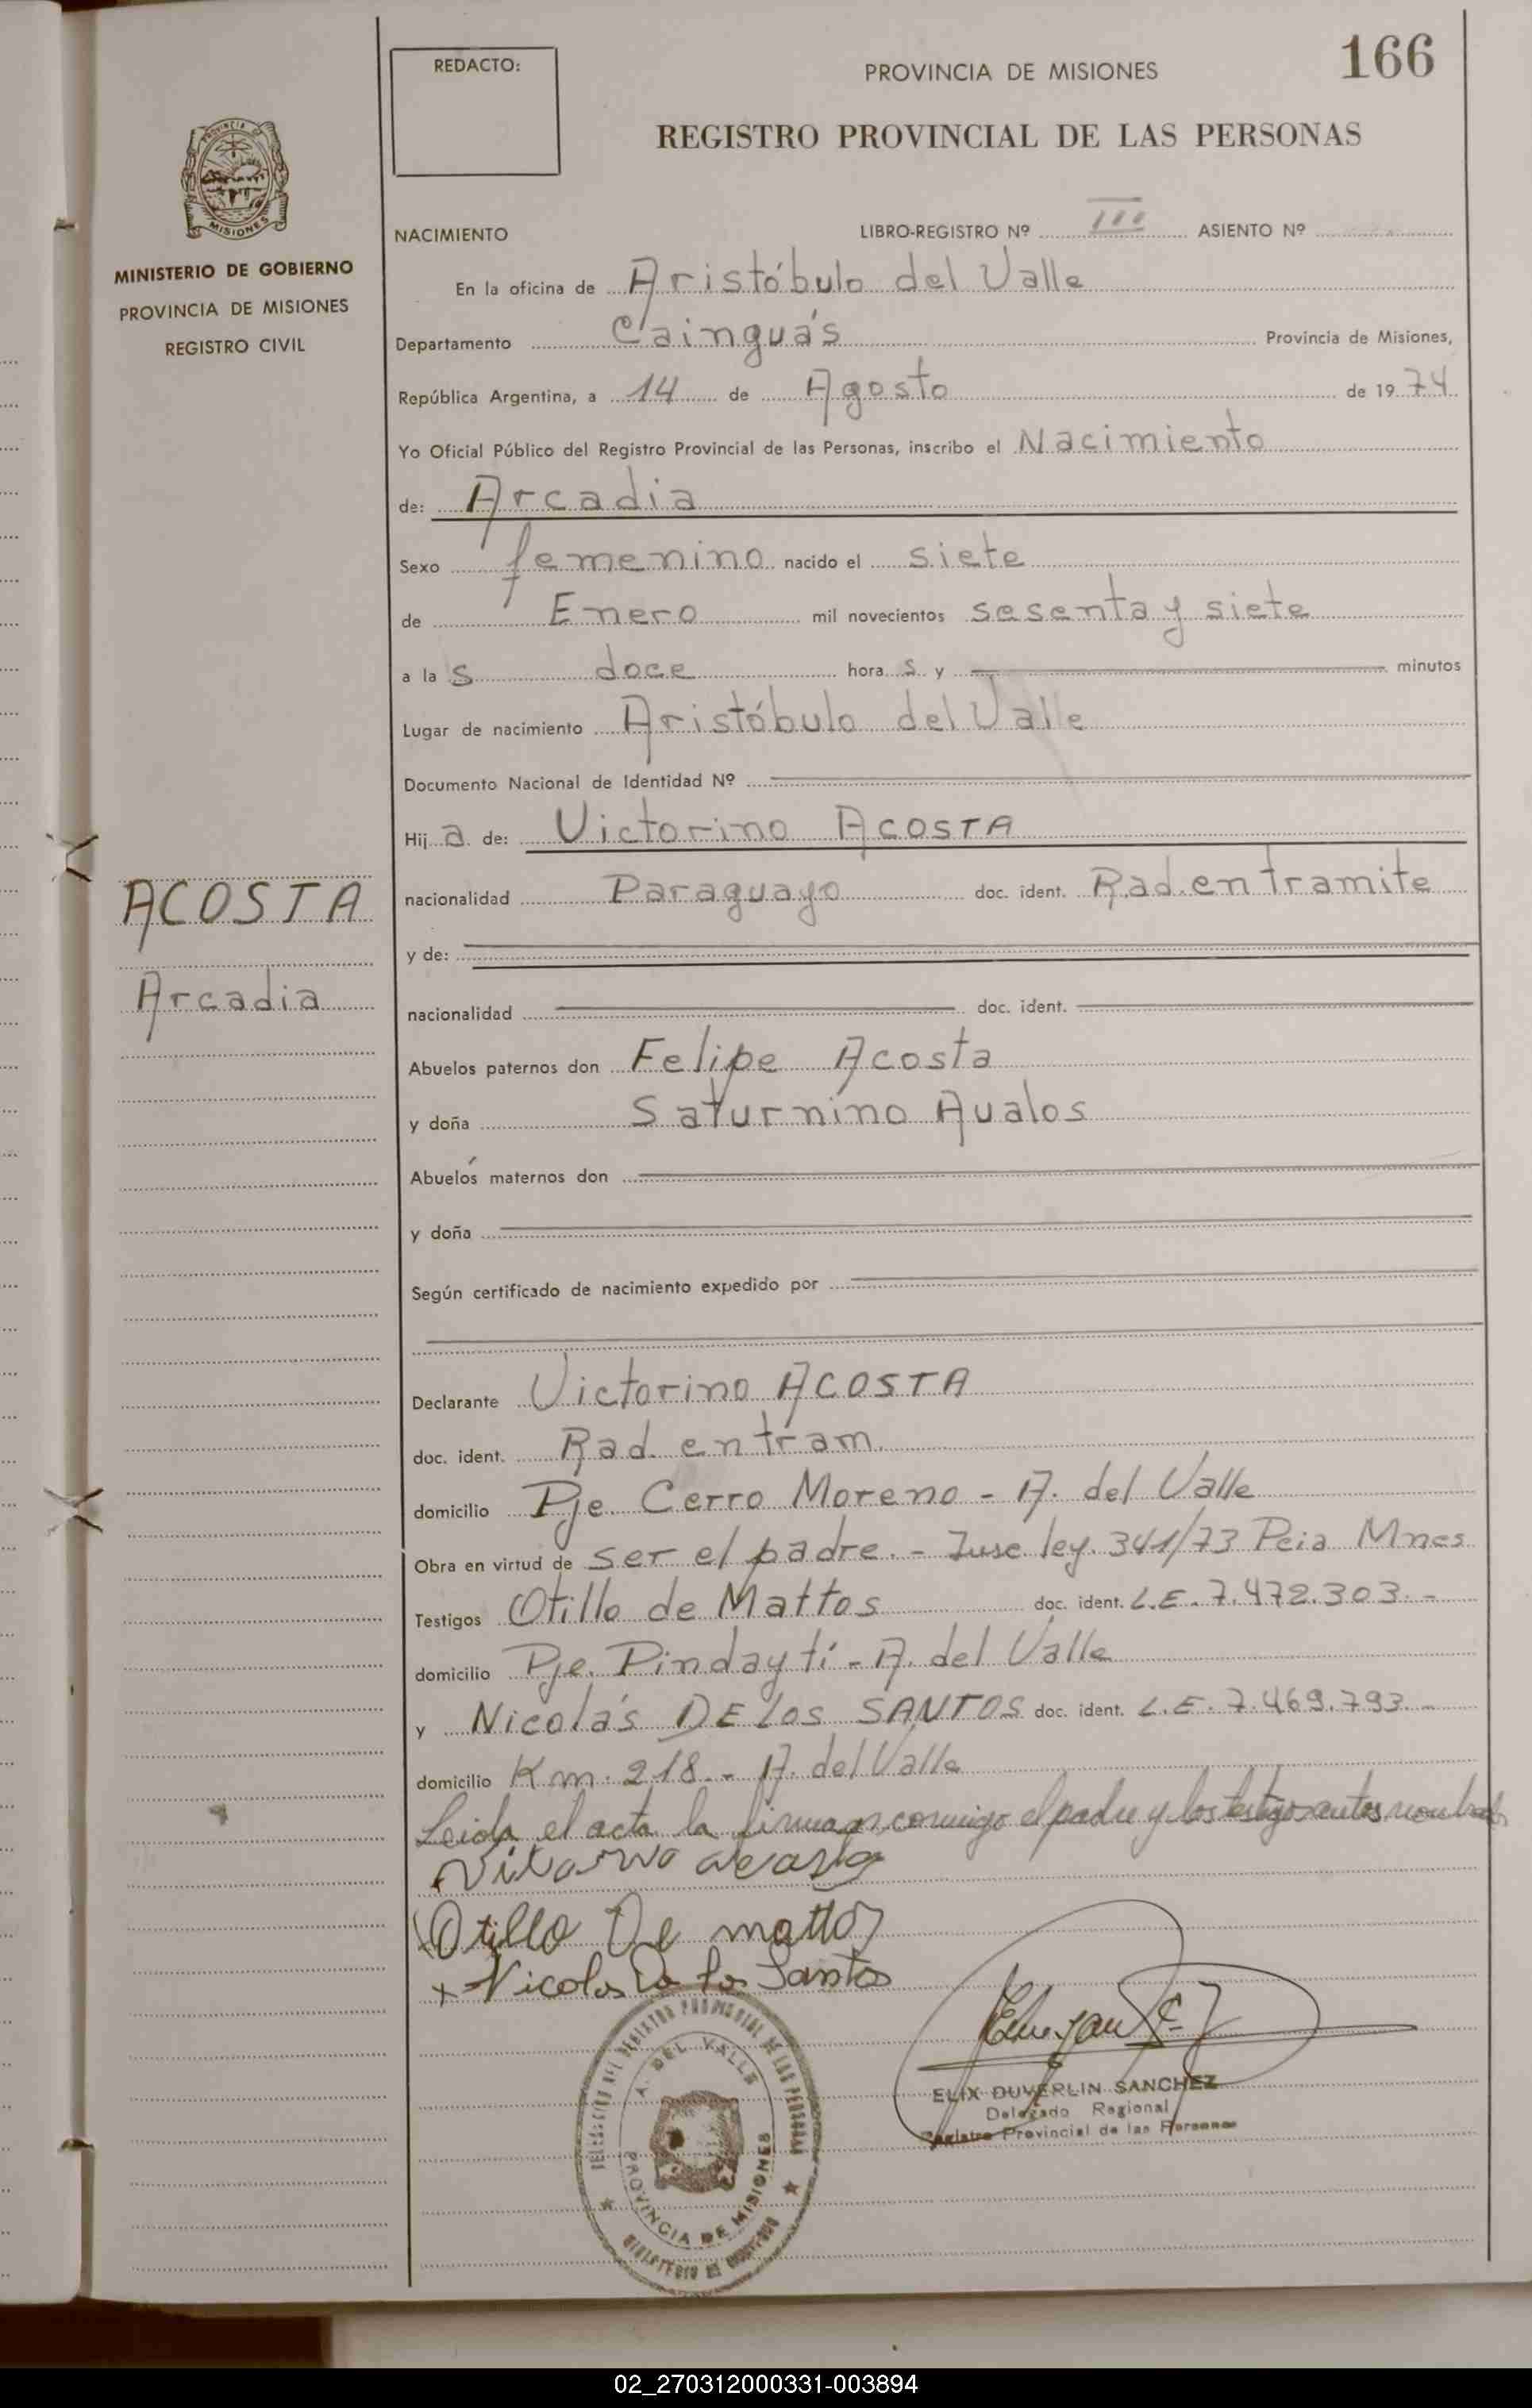 166
REDACTO:
PROVINCIA DE MISIONES
REGISTRO PROVINCIAL DE LAS PERSONAS
PROVINCIA DE
MISIONES
MINISTERIO DE GOBIERNO
PROVINCIA DE MISIONES
REGISTRO CIVIL
NACIMIENTO LIBRO-REGISTRO Nº III ASIENTO Nº
En la oficina de Aristóbulo del Valle
Departamento Cainguás Provincia de Misiones,
República Argentina, a 14 de Agosto de 1974
Yo Oficial Público del Registro Provincial de las Personas, inscribo el Nacimiento
de: Arcadia
Sexo femenino nacido el siete
de Enero mil novecientos sesenta y siete
a las doce horas y minutos
Lugar de nacimiento Aristóbulo del Valle
Documento Nacional de Identidad Nº
Hija de: Victorino ACOSTA
nacionalidad Paraguayo doc. ident. Rad. en tramite
ACOSTA
Arcadia
y de:
nacionalidad doc. ident.
Abuelos paternos don Felipe Acosta
y doña Saturnino Avalos
Abuelos maternos don
y doña
Según certificado de nacimiento expedido por
Declarante Victorino ACOSTA
doc. ident. Rad. en tram.
domicilio Pje. Cerro Moreno - A. del Valle
Obra en virtud de ser el padre. - ley. 341/73 Pcia Mnes
Testigos Otillo de Mattos doc. ident. L.E. 7.472.303.-
domicilio Pje. Pindaytí - A. del Valle
y Nicolás DE LOS SANTOS doc. ident. L.E. 7.469.793.-
domicilio Km. 218.- A. del Valle
Leida el acta la firman conmigo el padre y los testigos antes
Otillo De mattos
x Nicolas De los Santos
DELEGACION DEL REGISTRO PROVINCIAL DE LAS PERSONAS
A. DEL VALLE
PROVINCIA DE MISIONES
MINISTERIO DE GOBIERNO
ELIX DUVERLIN SANCHEZ
Delegado Regional
Registro Provincial de las Personas
02_270312000331-003894